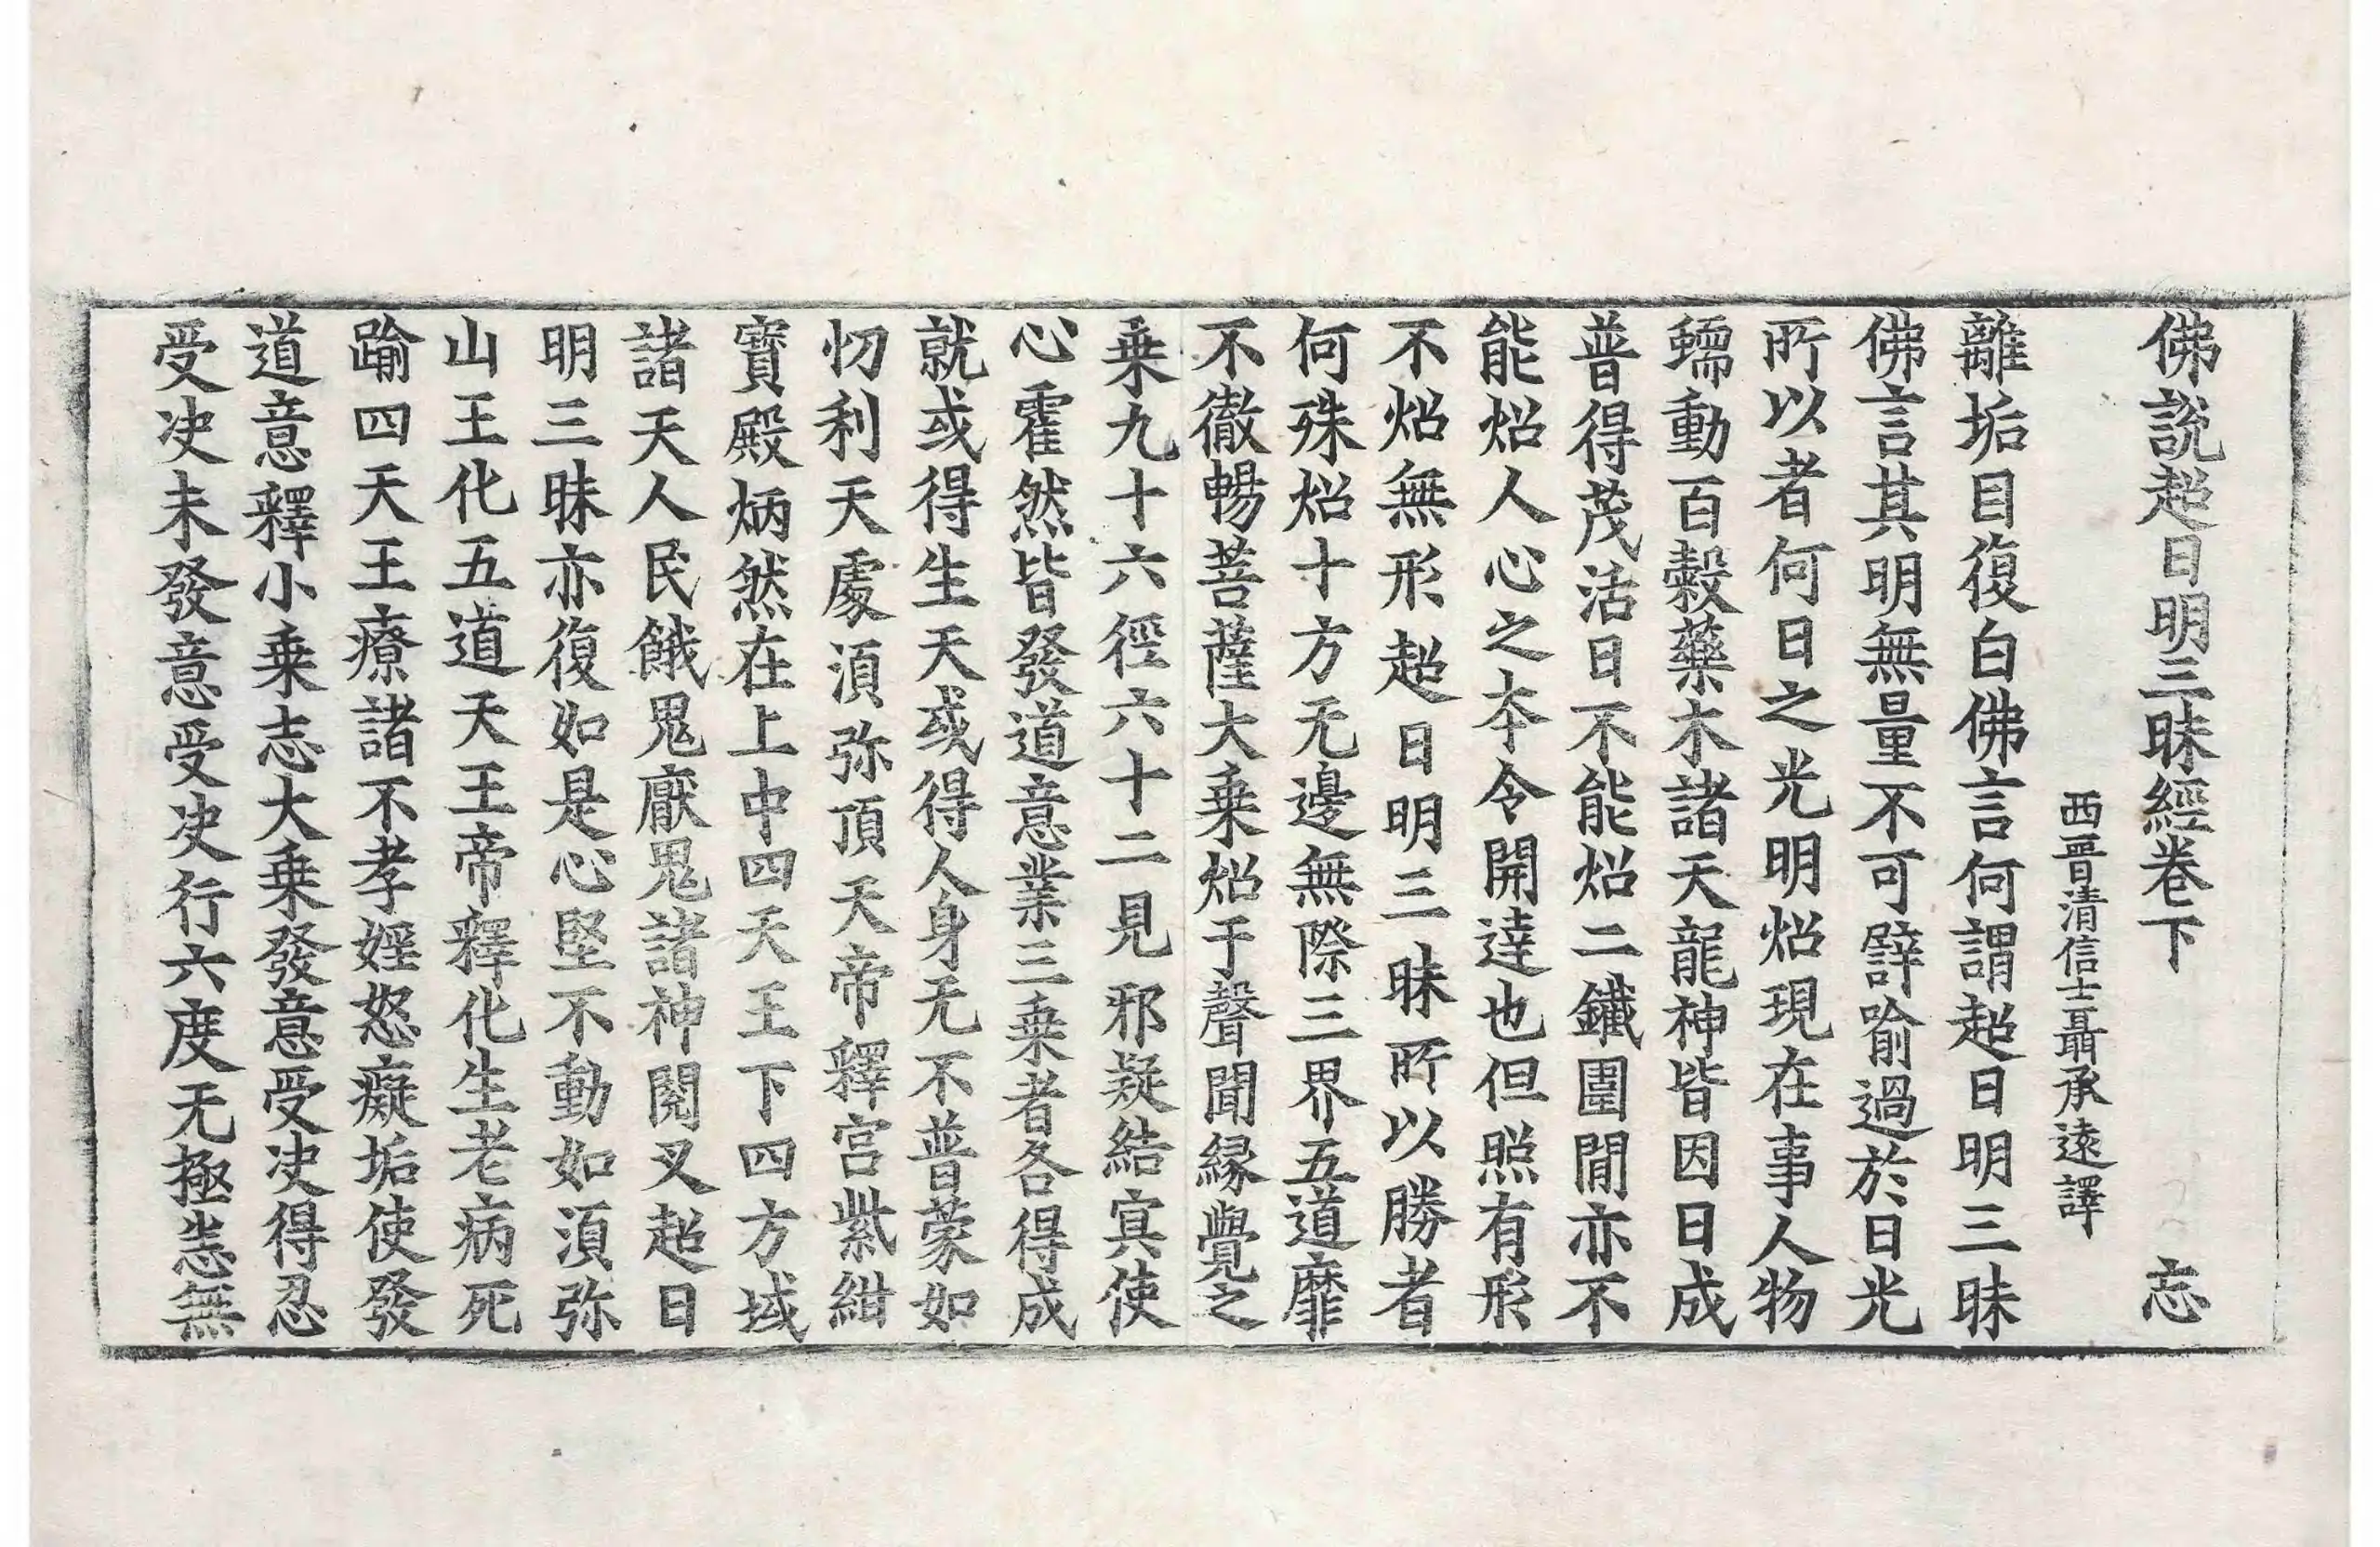 佛說超日明三昧經卷下 忘
西晉清信士聶承遠譯
離垢目復白佛言何謂超日明三昧
佛言其明無量不可譬喻過於日光
所以者何日之光明炤現在事人物
蠕動百穀藥木諸天龍神皆因日成
普得茂活日不能炤二鐵圍閒亦不
能炤人心之本令開達也但照有形
不炤無形超日明三昧所以勝者
何殊炤十方无邊無際三界五道靡
不徹暢菩薩大乗炤于聲聞緣覺之
乗九十六徑六十二見邪疑結寘使
心霍然皆發道意業三乗者各得成
就或得生天或得人身无不普蒙如
忉利天處湏弥頂天帝釋宮紫紺
寶殿炳然在上中四天王下四方域
諸天人民餓鬼厭鬼諸神閱叉超日
明三昧亦復如是心堅不動如湏弥
山王化五道天王帝釋化生老病死
踰四天王療諸不孝婬怒癡垢使發
道意釋小乗志大乗發意受決得忍
受决未發意受决行六度无極悲無